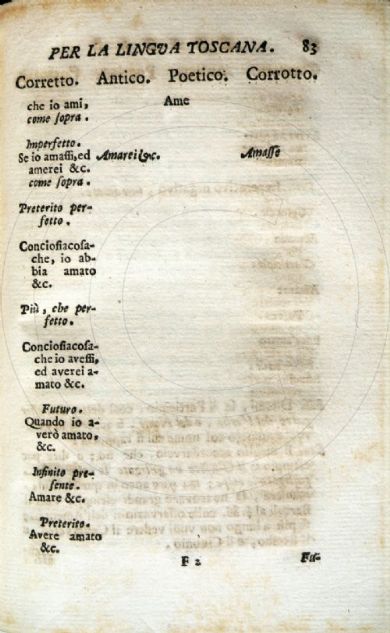 PER LA LINGVA TOSCANA. 83
Corretto. Antico. Poetico. Corrotto.
che io ami, Ame
come ſopra.
Imperfetto.
Se io amaſſi, ed Amarei &c. Amaſſe
amerei &c.
come ſopra.
Preterito per-
fetto.
Conciofiacoſa-
che, io ab-
bia amato
&c.
Più, che per-
fetto.
Conciofiacoſa-
che io aveſſi,
ed averei a-
mato &c.
Futuro.
Quando io a-
verò amato,
&c.
Infinito pre-
ſente.
Amare &c.
Preterito.
Avere amato
&c.
F 2